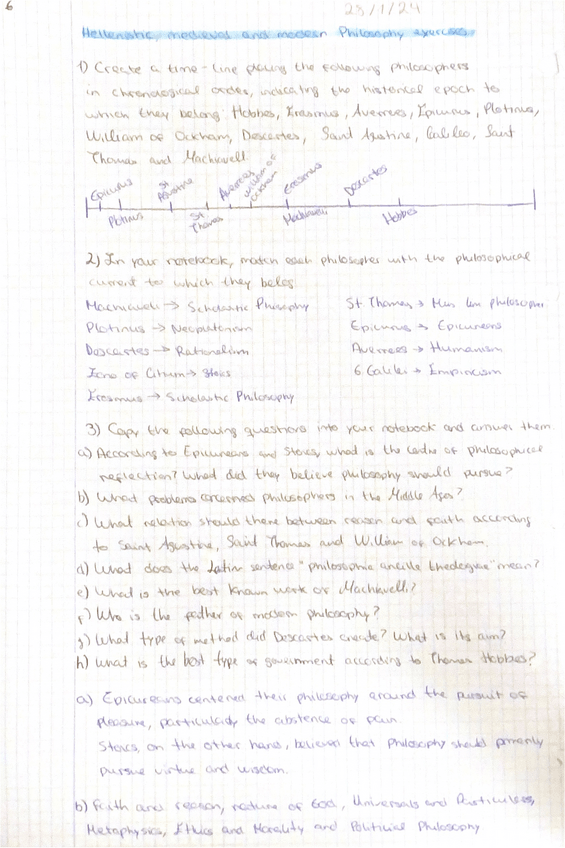 6
23/1/24
Hellenistic, medieval and modern Philosophy exercises.
1) Create a time-line placing the following philosophers
in chronological order, indicating the historical epoch to
which they belong: Hobbes, Erasmus, Averroes, Epicurus, Plotinus,
William of Ockham, Descartes, Saint Agustine, Galileo, Saint
Thomas and Machiavelli.
Epicurus St Agustine Averroes William of Ockham Erasmus Descartes
Plotinus St Thomas Machiavelli Hobbes
2) In your notebook, match each philosopher with the philosophical
current to which they belog.
Machiaveli → Scholastic Philosophy St Thomas → philosopher
Plotinus → Neoplatonism Epicurus → Epicureans
Descartes → Rationalism Averroes → Humanism
Zeno of Citium → Stoics G Galilei → Empiricism
Erasmus → Scholastic Philosophy
3) Copy the following questions into your notebook and answer them
a) According to Epicureans and Stoics, what is the of philosophical
reflection? What did they believe philosophy should pursue?
b) What problems concerned philosophers in the Middle Ages?
c) What relation should there between reason and faith according
to Saint Agustine, Saint Thomas and William of Ockham.
d) What does the Latin sentence "philosophie ancille theologiae" mean?
e) What is the best known work of Machiavelli?
f) Who is the father of modern philosophy?
g) What type of method did Descartes create? What is its aim?
h) What is the best type of government according to Thomas Hobbes?
a) Epicureans centered their philosophy around the pursuit of
pleasure, particularly the abstence of pain.
Stoics, on the other hand, believed that philosophy should primarily
pursue virtue and wisdom.
b) Faith and reason, nature of God, Universals and Particulars,
Metaphysics, Ethics and Morality and Political Philosophy